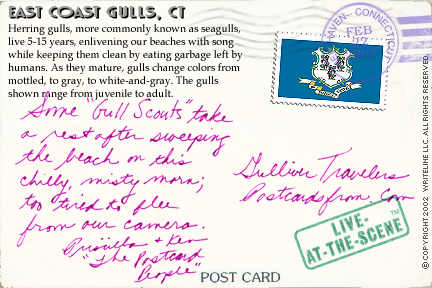 EAST COAST GULLS, CT
Herring gulls, more commonly known as seagulls,
live 5-15 years, enlivening our beaches with song
while keeping them clean by eating garbage left by
humans. As they mature, gulls change colors from
mottled, to gray, to white-and-gray. The gulls
shown range from juvenile to adult.
Some "Gull Scouts" take
a rest after sweeping
the beach on this
chilly, misty morn;
too tired to flee
from our camera.
Priscilla + Ken
"The Postcard
People"
HAVEN - CONNECTICUT
FEB
Gulliver Travelers
Postcardsfrom.com
LIVE-
AT-THE-SCENE™
POST CARD
© COPYRIGHT 2002 WRITELINE LLC. ALL RIGHTS RESERVED.